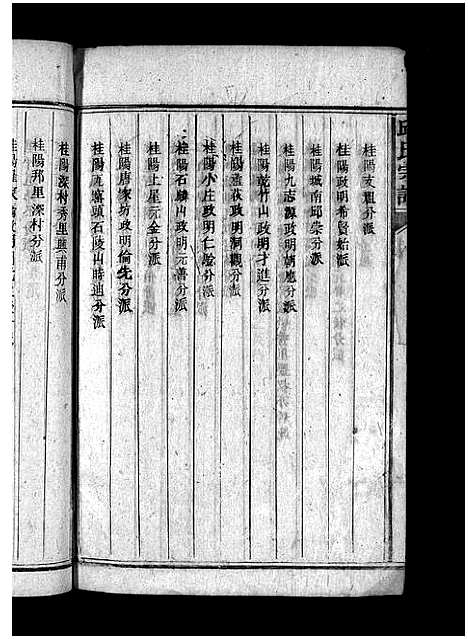 邱氏宗譜
桂陽支祖分派
桂陽政明希賢始派
桂陽城南邱崇分派
桂陽九志源政明胡應分派
桂陽乾竹山政明才進分派
桂陽蓮花政明洞觀分派
桂陽小庄政明仁松分派
桂陽石驥山政明元善分派
桂陽上星元金分派
桂陽唐家坊政明倫先分派
桂陽瓦窰頭石陵山時迪分派
桂陽深村秀里興甫分派
桂陽邦里深村分派